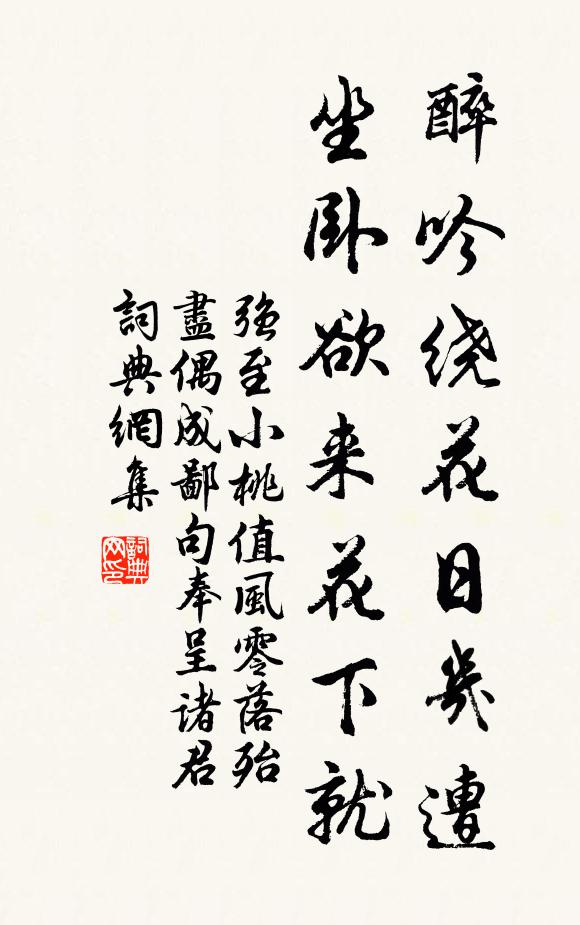 醉吟绕花日幾遭
坐卧欲来花下就
强至小桃值風零落殆
盡偶成鄙句奉呈诸君
詞典網集
詞典
网印